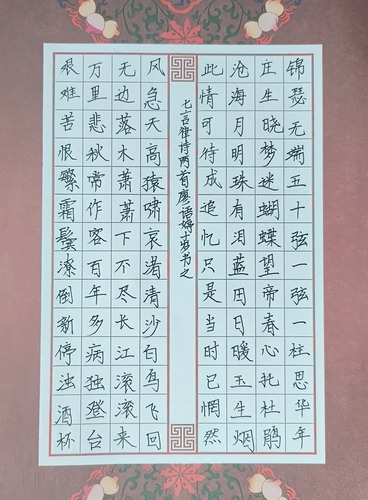 锦瑟无端五十弦一弦一柱思华年
庄生晓梦迷蝴蝶望帝春心托杜鹃
沧海月明珠有泪蓝田日暖玉生烟
此情可待成追忆只是当时已惘然
七言律诗两首廖语婷十岁书之
风急天高猿啸哀渚清沙白鸟飞回
无边落木萧萧下不尽长江滚滚来
万里悲秋常作客百年多病独登台
艰难苦恨繁霜鬓潦倒新停浊酒杯